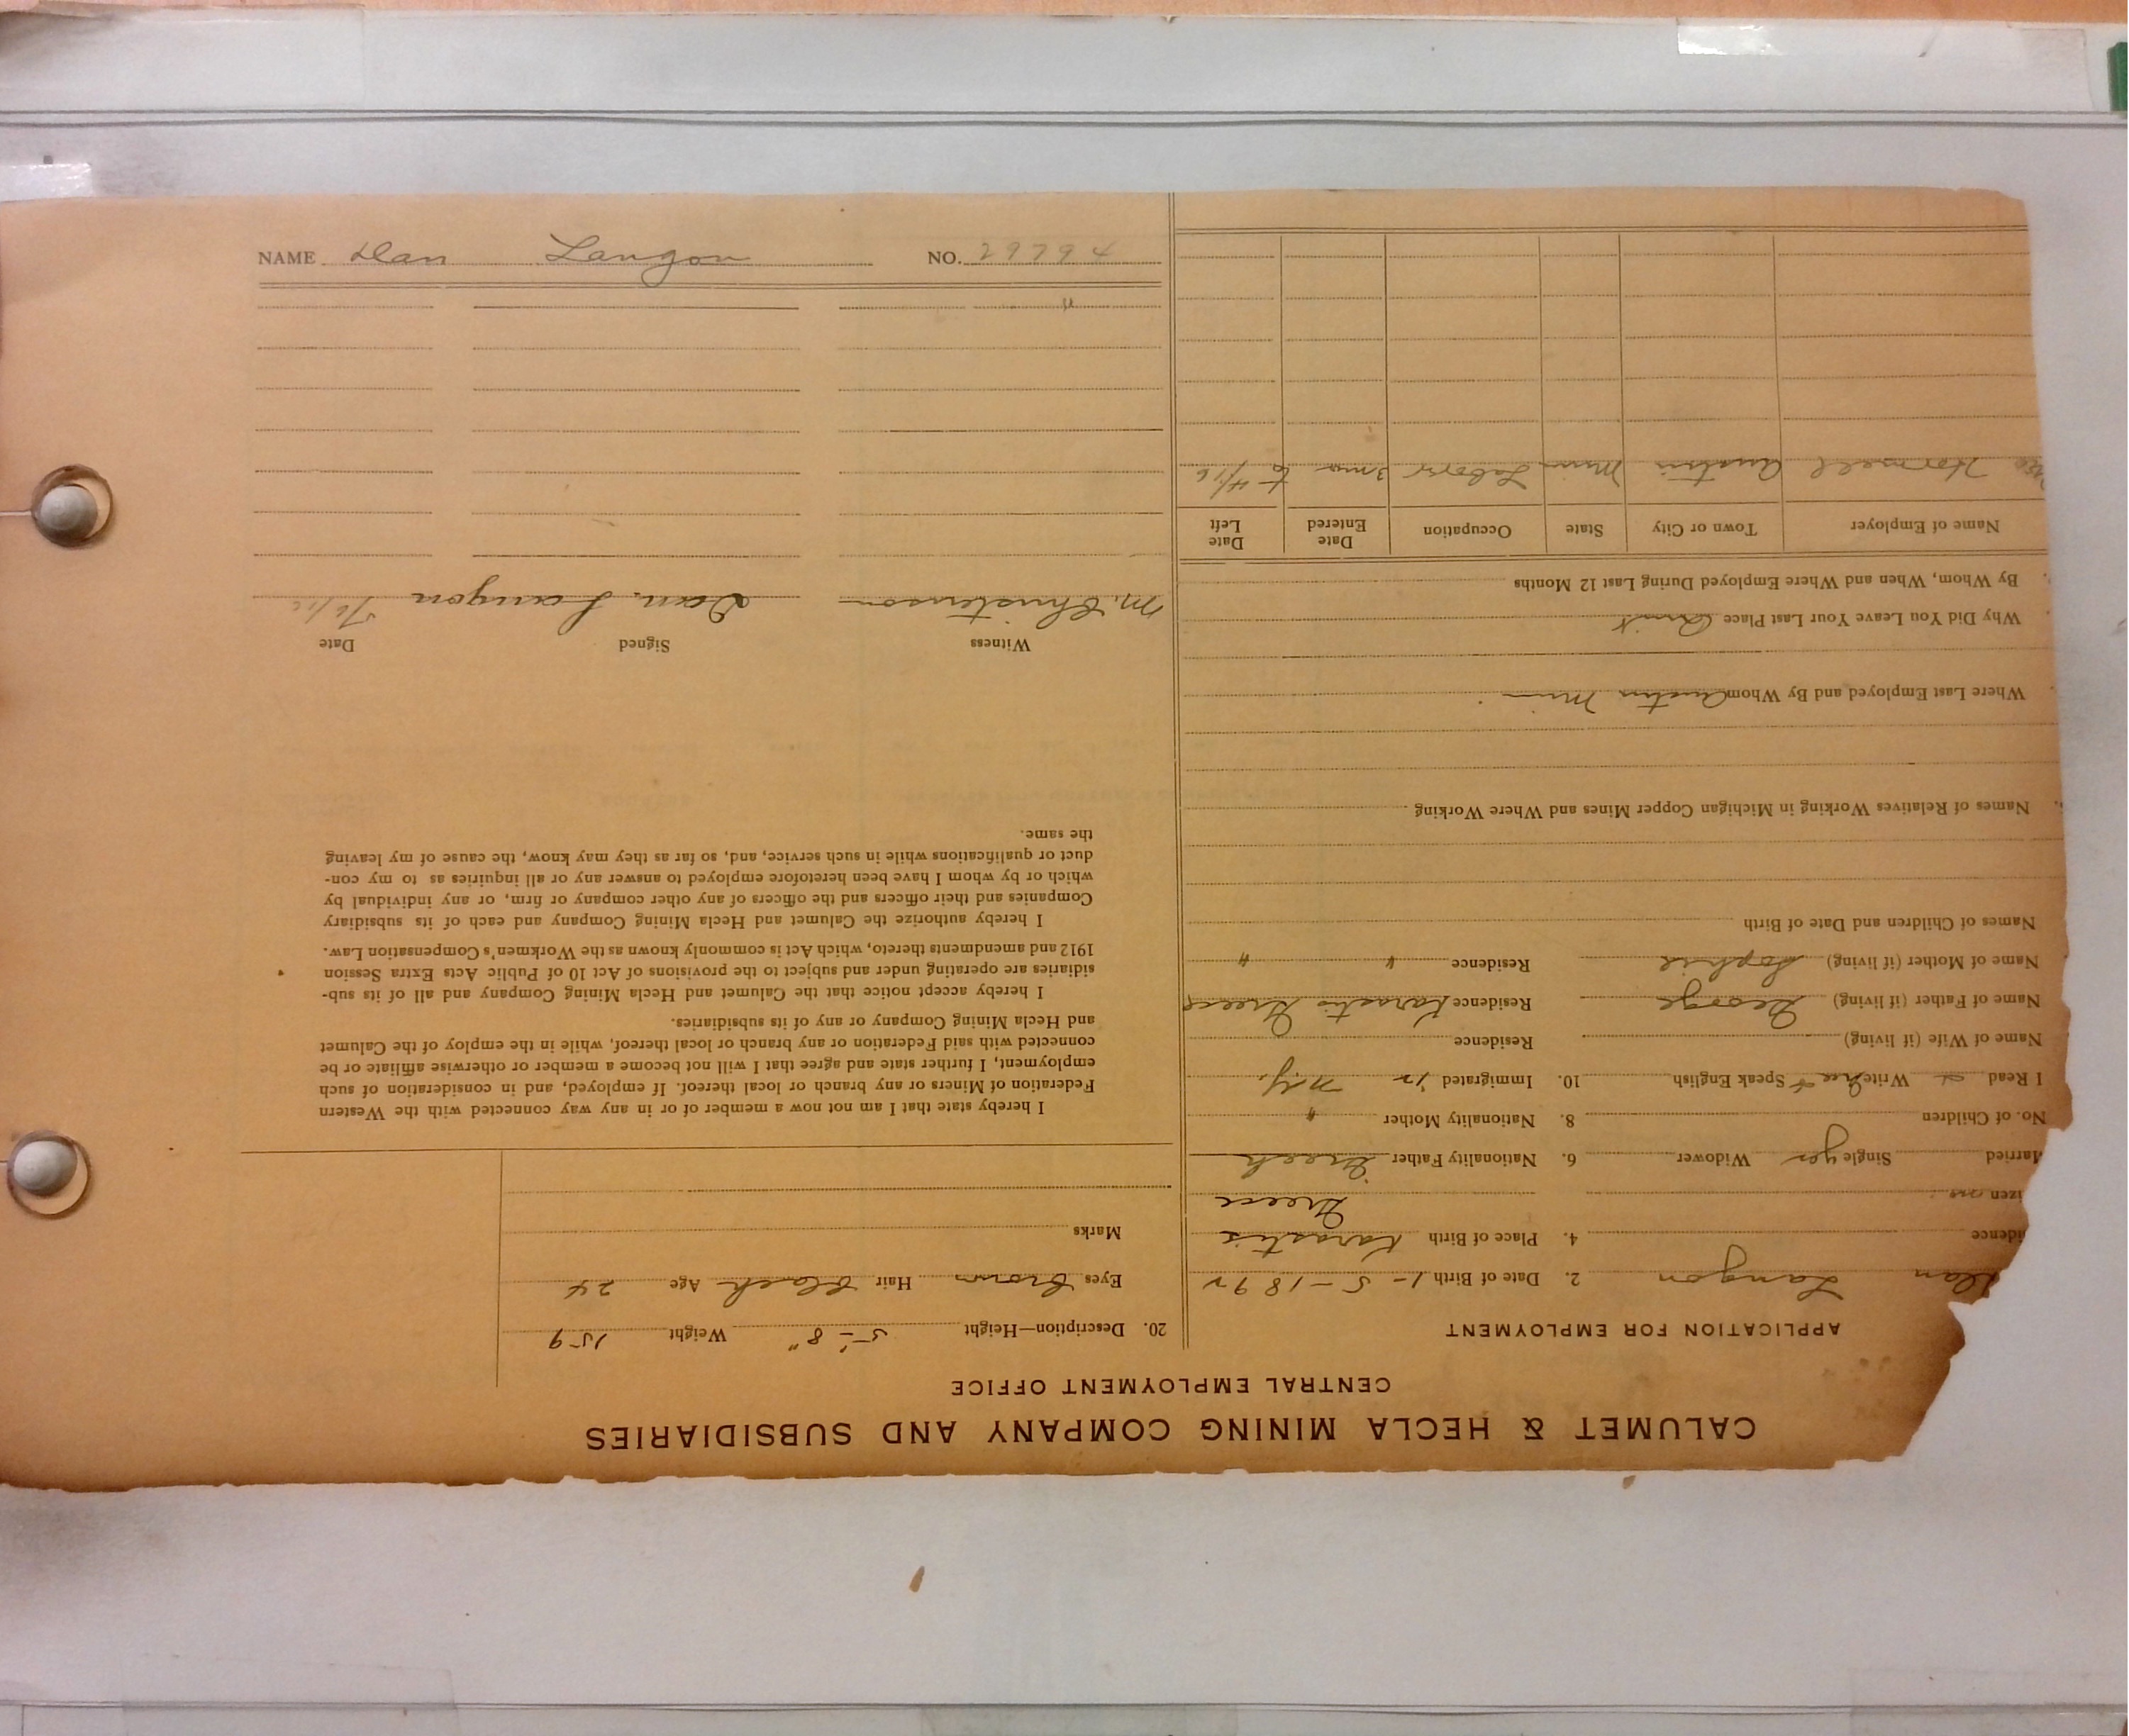 NAME Dan Langon NO. 29794
CALUMET & HECLA MINING COMPANY AND SUBSIDIARIES
CENTRAL EMPLOYMENT OFFICE
APPLICATION FOR EMPLOYMENT
Dan Langon 2. Date of Birth 1-5-1892
idence 4. Place of Birth Karastis
izen Greece
Married Single yes Widower 6. Nationality Father Greek
No. of Children 8. Nationality Mother "
I Read Write Speak English 10. Immigrated N.Y.
Name of Wife (if living) Residence
Name of Father (if living) George Residence Karastis Greece
Name of Mother (if living) Sophie Residence " "
Names of Children and Date of Birth
Names of Relatives Working in Michigan Copper Mines and Where Working
Where Last Employed and By Whom Austin Minn
Why Did You Leave Your Last Place Quit
By Whom, When and Where Employed During Last 12 Months
Name of Employer Town or City State Occupation Date Entered Date Left
Hormell Austin Minn Labors 3 mo to 4/16
20. Description—Height 5'-8" Weight 159
Eyes Brown Hair Black Age 24
Marks
I hereby state that I am not now a member of or in any way connected with the Western
Federation of Miners or any branch or local thereof. If employed, and in consideration of such
employment, I further state and agree that I will not become a member or otherwise affiliate or be
connected with said Federation or any branch or local thereof, while in the employ of the Calumet
and Hecla Mining Company or any of its subsidiaries.
I hereby accept notice that the Calumet and Hecla Mining Company and all of its sub-
sidiaries are operating under and subject to the provisions of Act 10 of Public Acts Extra Session
1912 and amendments thereto, which Act is commonly known as the Workmen's Compensation Law.
I hereby authorize the Calumet and Hecla Mining Company and each of its subsidiary
Companies and their officers and the officers of any other company or firm, or any individual by
which or by whom I have been heretofore employed to answer any or all inquiries as to my con-
duct or qualifications while in such service, and, so far as they may know, the cause of my leaving
the same.
Witness Signed Date
M. Christenson Dan. Langon